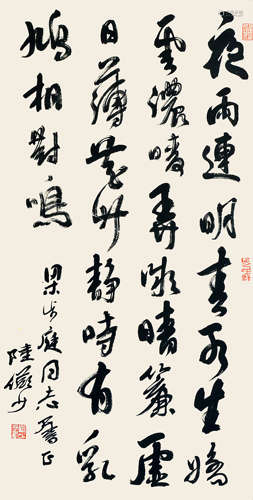 夜雨連明春水生嬌
雲濃暖弄微晴簾虛
日薄花竹靜時有乳
鳩相對鳴
梁步庭同志正
陸儼少